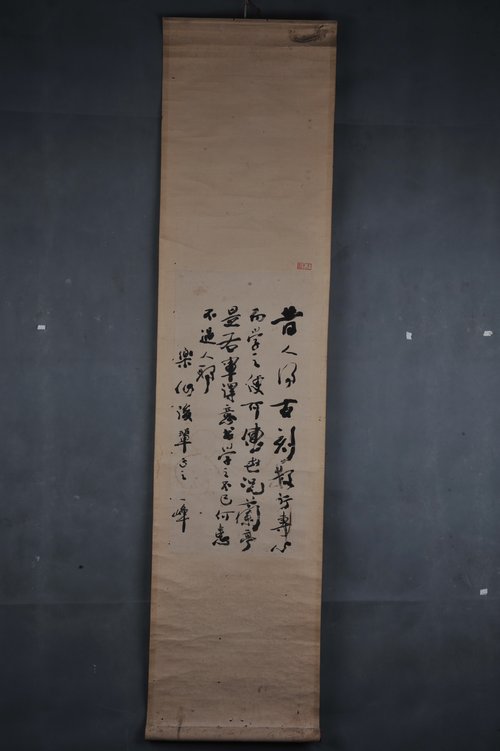 昔人得古刻數行專心
而学之便可傳世况蘭亭
是右軍得意書学之不已何患
不過人耶
樂仙浚翬正之 一峰